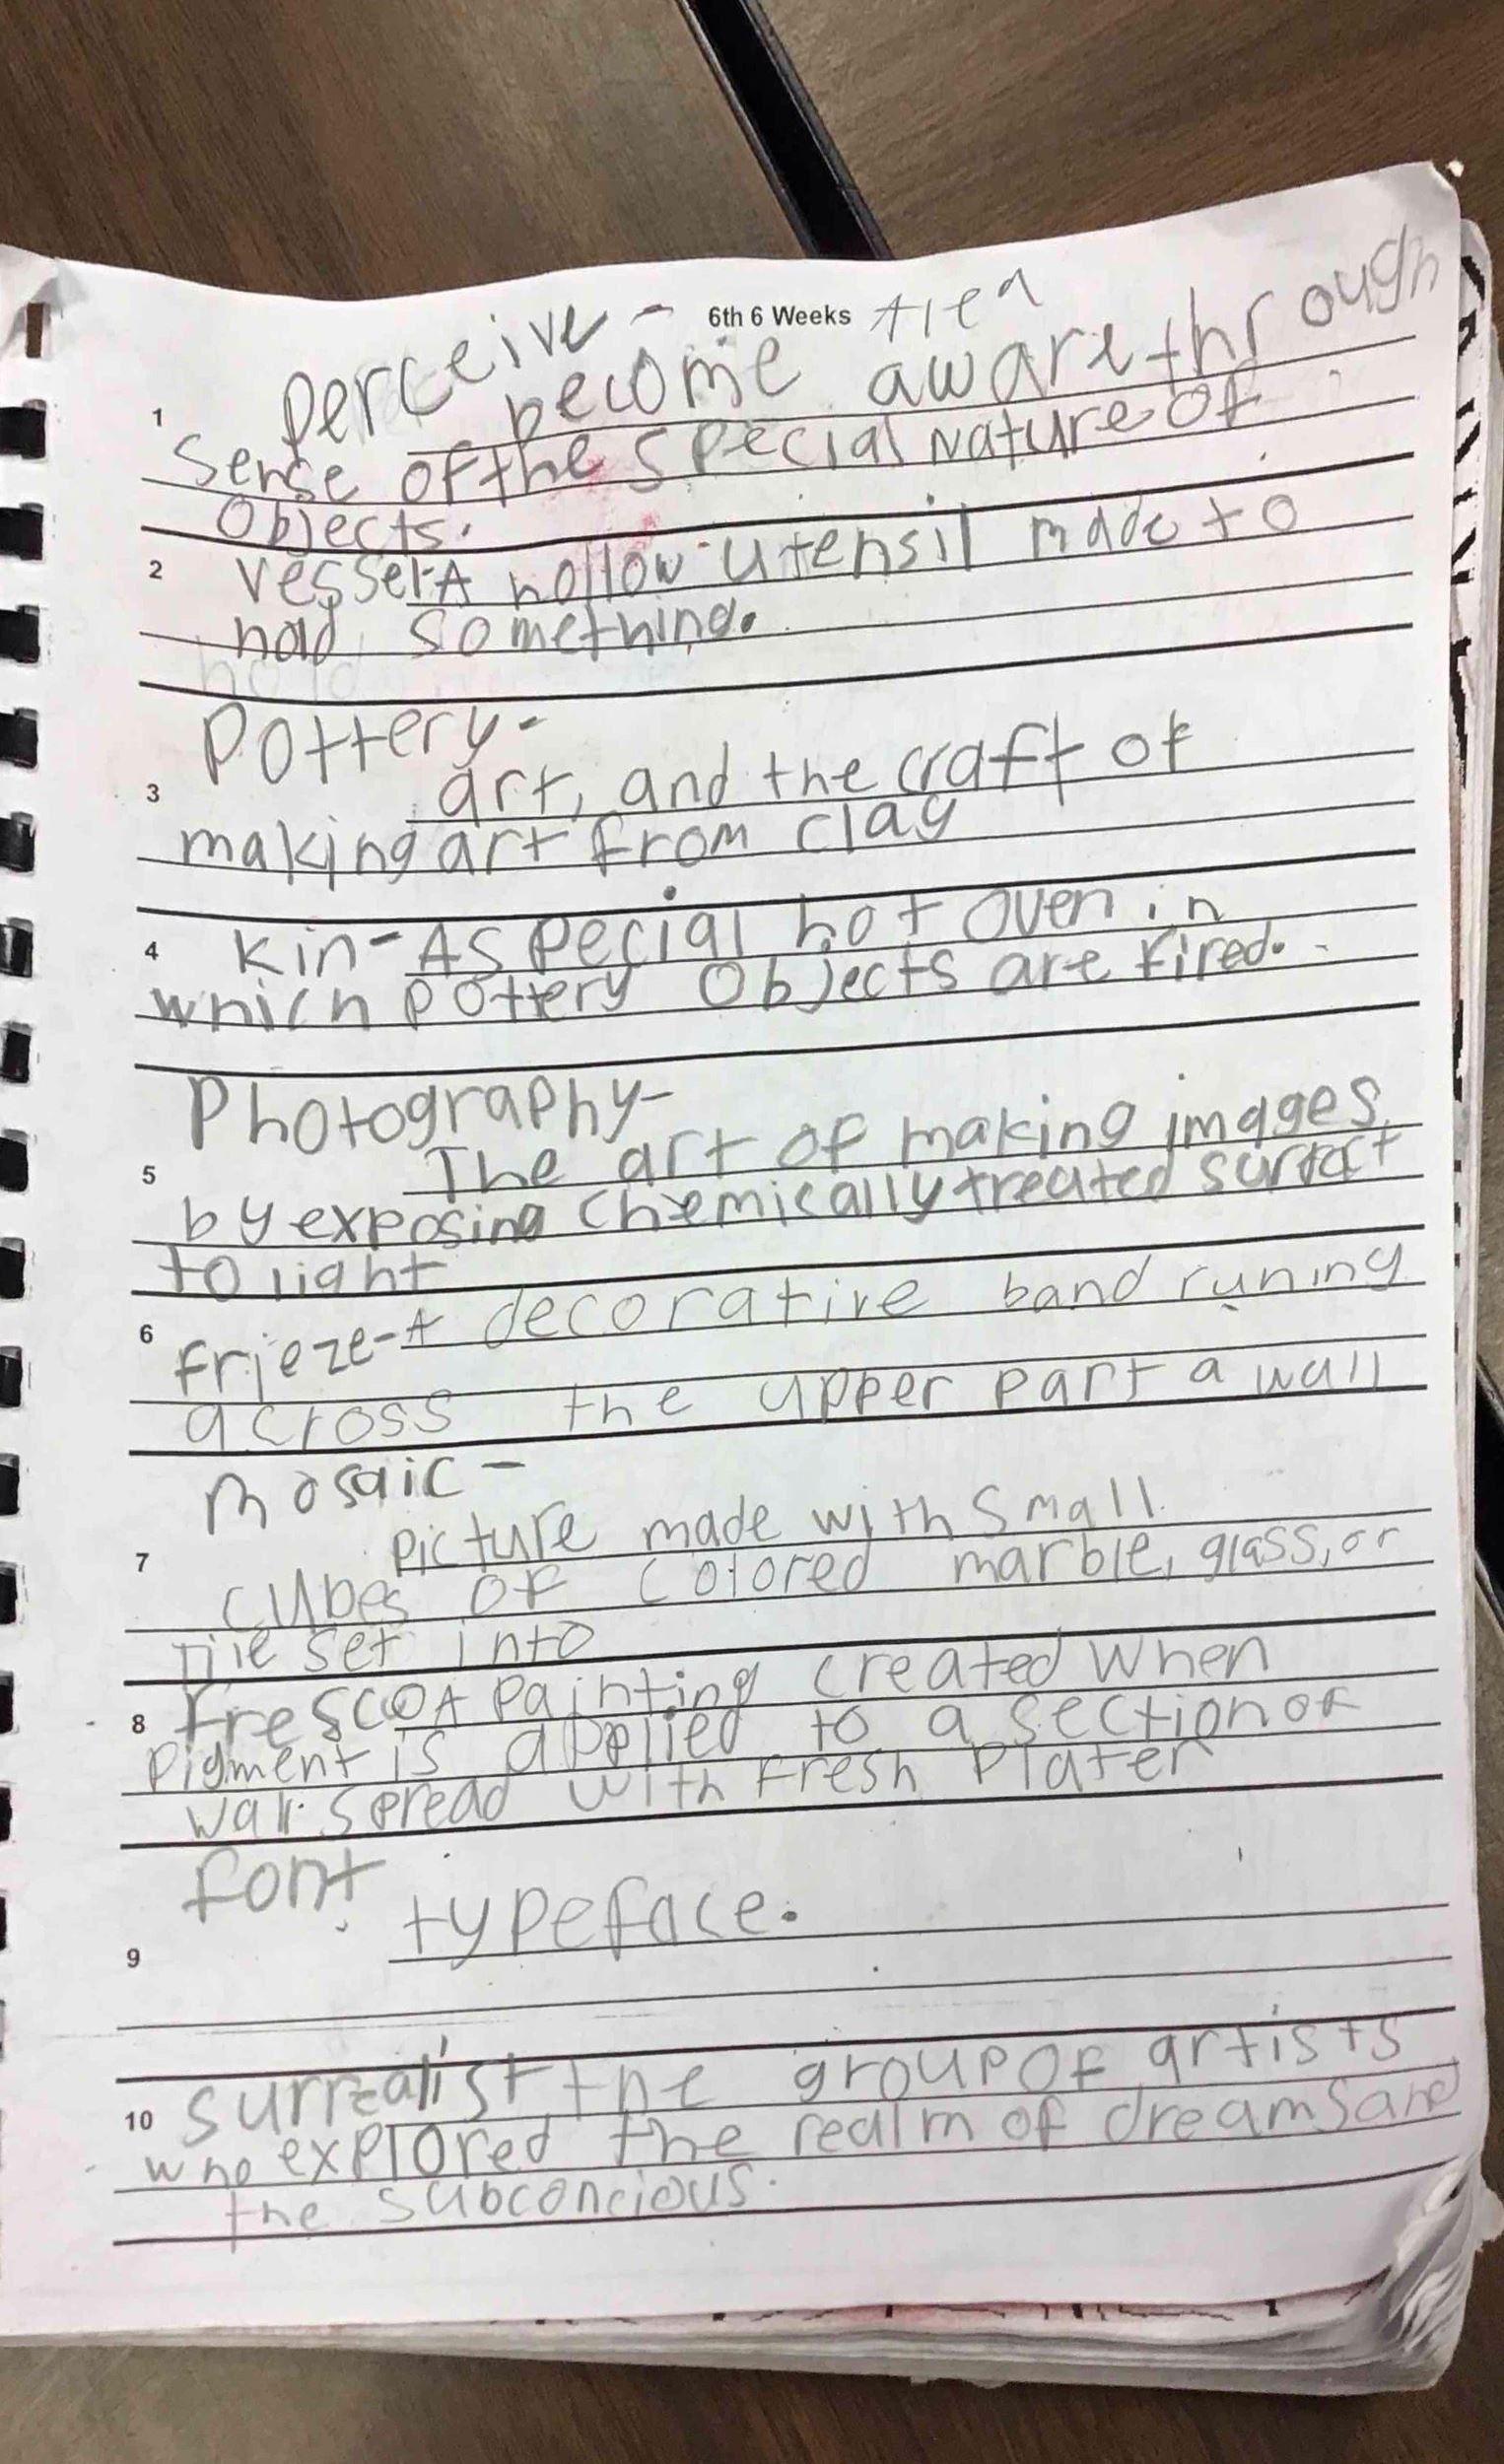 6th 6 Weeks
1 perceive - become aware through
sense of the special nature of
objects.
2 vessel-A hollow utensil made to
hold something.
hold
Pottery-
3 art, and the craft of
making art from clay
4 Kin-A special hot oven in
which pottery objects are fired.
Photography-
5 The art of making images
by exposing chemically treated surfact
to light
6 frieze-A decorative band runing
across the upper part a wall
mosaic -
7 picture made with small
cubes of colored marble, glass, or
tile set into
8 fresco A painting created when
pigment is applied to a section of
wall spread with fresh plater
font
9 typeface.
10 surrealist the group of artists
who explored the realm of dreams and
the subconcious.